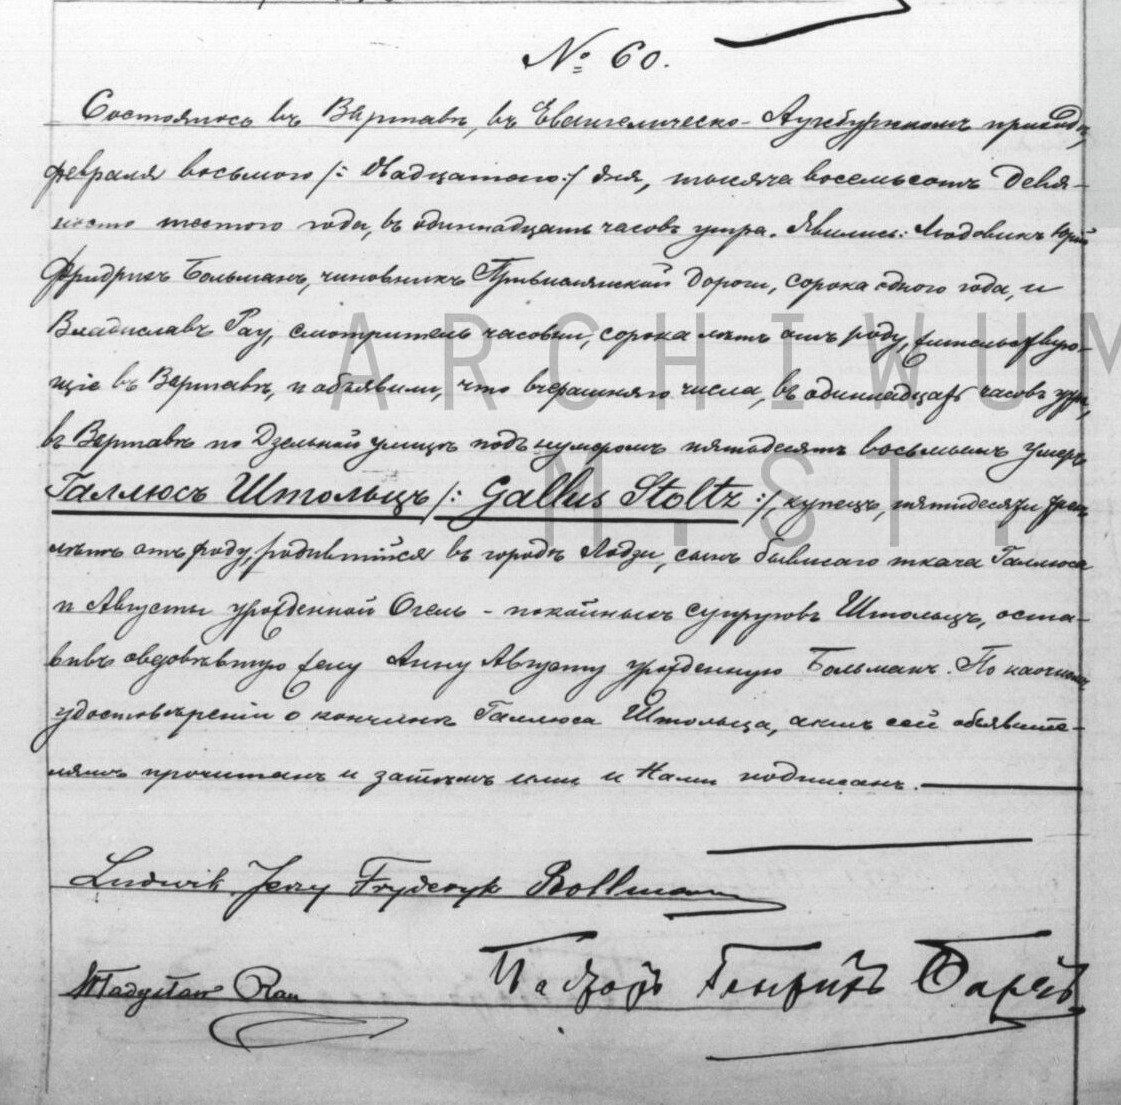 № 60.
Состоялось въ Варшавѣ, въ Евангелическо-Аугсбургскомъ приходѣ,
февраля восьмого /: двадцатаго :/ дня, тысяча восемьсотъ девя-
носто шестого года, въ одиннадцать часовъ утра. Явились: Людовикъ Юрій
Фридрихъ Больманъ, чиновникъ Привислянской дороги, сорока одного года, и
Владиславъ Рау, смотритель часовни, сорока лѣтъ отъ роду, жительствую-
щіе въ Варшавѣ, и объявили, что вчерашняго числа, въ одиннадцать часовъ утра,
въ Варшавѣ по Дзельной улицѣ подъ нумеромъ пятьдесятъ восьмымъ умеръ
Галлюсъ Штольцъ /: Gallus Stoltz :/, купецъ, пятидесяти трехъ
лѣтъ отъ роду, родившійся въ городѣ Лодзи, сынъ бывшаго ткача Галлюса
и Августы урожденной Огель - покойныхъ супруговъ Штольцъ, оста-
вивъ овдовѣвшую жену Анну Августу урожденную Больманъ. По наочномъ
удостовѣреніи о кончинѣ Галлюса Штольца, актъ сей объявите-
лямъ прочитанъ и затѣмъ ими и Нами подписанъ.
Ludwik Jerzy Fryderyk Bollman
Władysław Rau
Пасторъ Генрихъ
ARCHIWUM
M. ST.